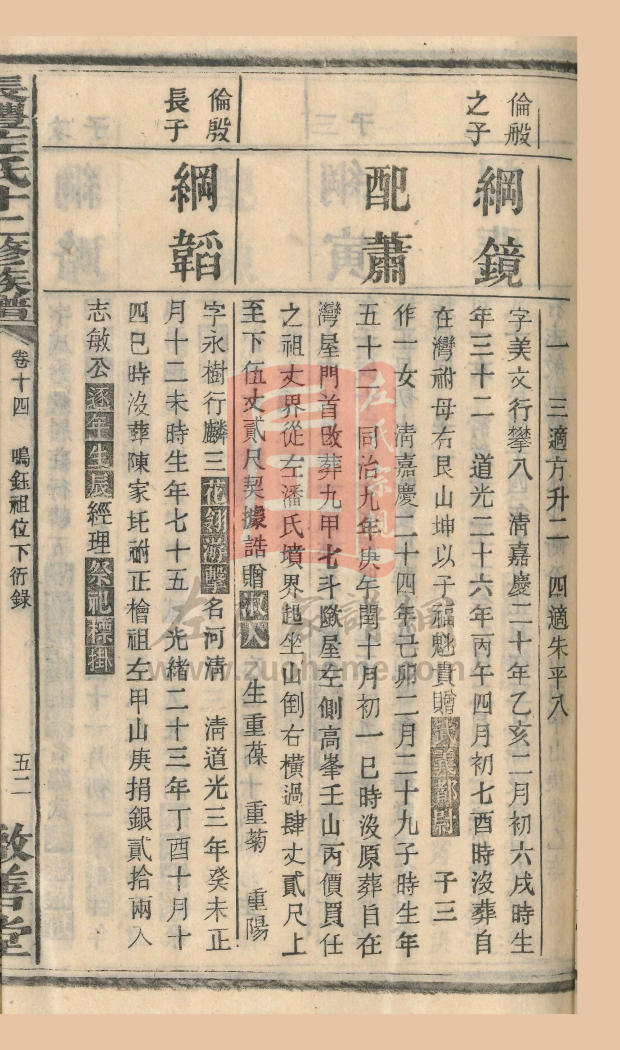 一　三適方升二　四適朱平八
倫殷之子
綱鏡
字美交行攀八　清嘉慶二十年乙亥二月初六戌時生
年三十二　道光二十六年丙午四月初七酉時沒葬自
在灣祔母右艮山坤以子福魁貴贈武義都尉　子三
配蕭
作一女　清嘉慶二十四年己卯二月二十九子時生年
五十二　同治九年庚午閏十月初一巳時沒原葬自在
灣屋門首改葬九甲七斗坵屋左側高峯壬山丙價買任
之祖丈界從左潘氏墳界起坐山倒右橫過肆丈貳尺上
至下伍丈貳尺契據誥贈淑人　生重葆　重菊　重陽
倫殷長子
綱韜
字永樹行麟三花翎游擊名河清　清道光三年癸未正
月十二未時生年七十五　光緒二十三年丁酉十月十
四巳時沒葬陳家圫祔正檜祖左甲山庚捐銀貳拾兩入
志敏公逐年生辰經理祭祀標掛
左氏十二修族譜
卷十四　鳴鈺祖位下衍錄
五二
敦善堂
左氏宗親
左氏家譜網
www.zuohome.com